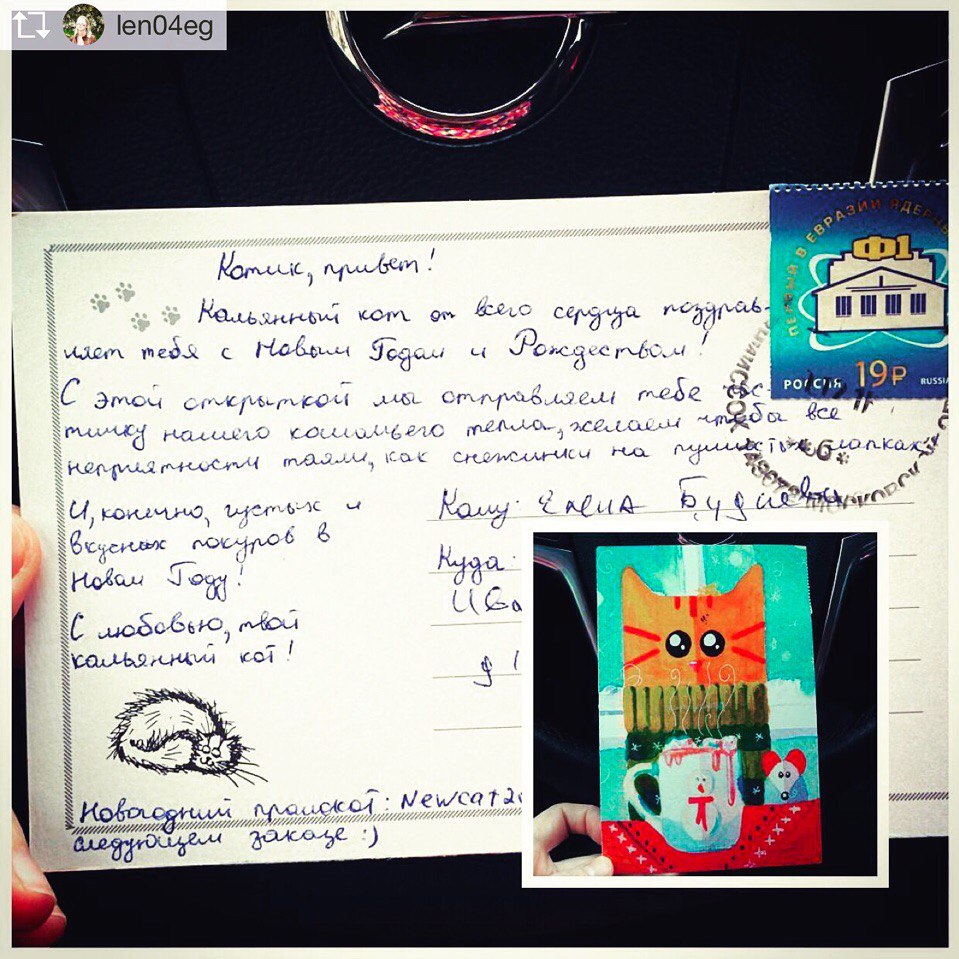 len04eg
Котик, привет!
Кальянный кот от всего сердца поздрав-
ляет тебя с Новым Годом и Рождеством!
С этой открыткой мы отправляем тебе час
тичку нашего кошачьего тепла, желаем чтобы все
неприятности таяли, как снежинки на пушистых лапках,
И, конечно, густых и
вкусных покуров в
Новом Году!
С любовью, твой
кальянный кот!
Новогодний промокот: Newcat20
следующем заказе :)
Кому: Елена
Куда:
Ива
д
ПЕРВЫЙ В ЕВРАЗИИ ЯДЕРНЫ
Ф1
РОССИЯ 19₽ RUSSIA